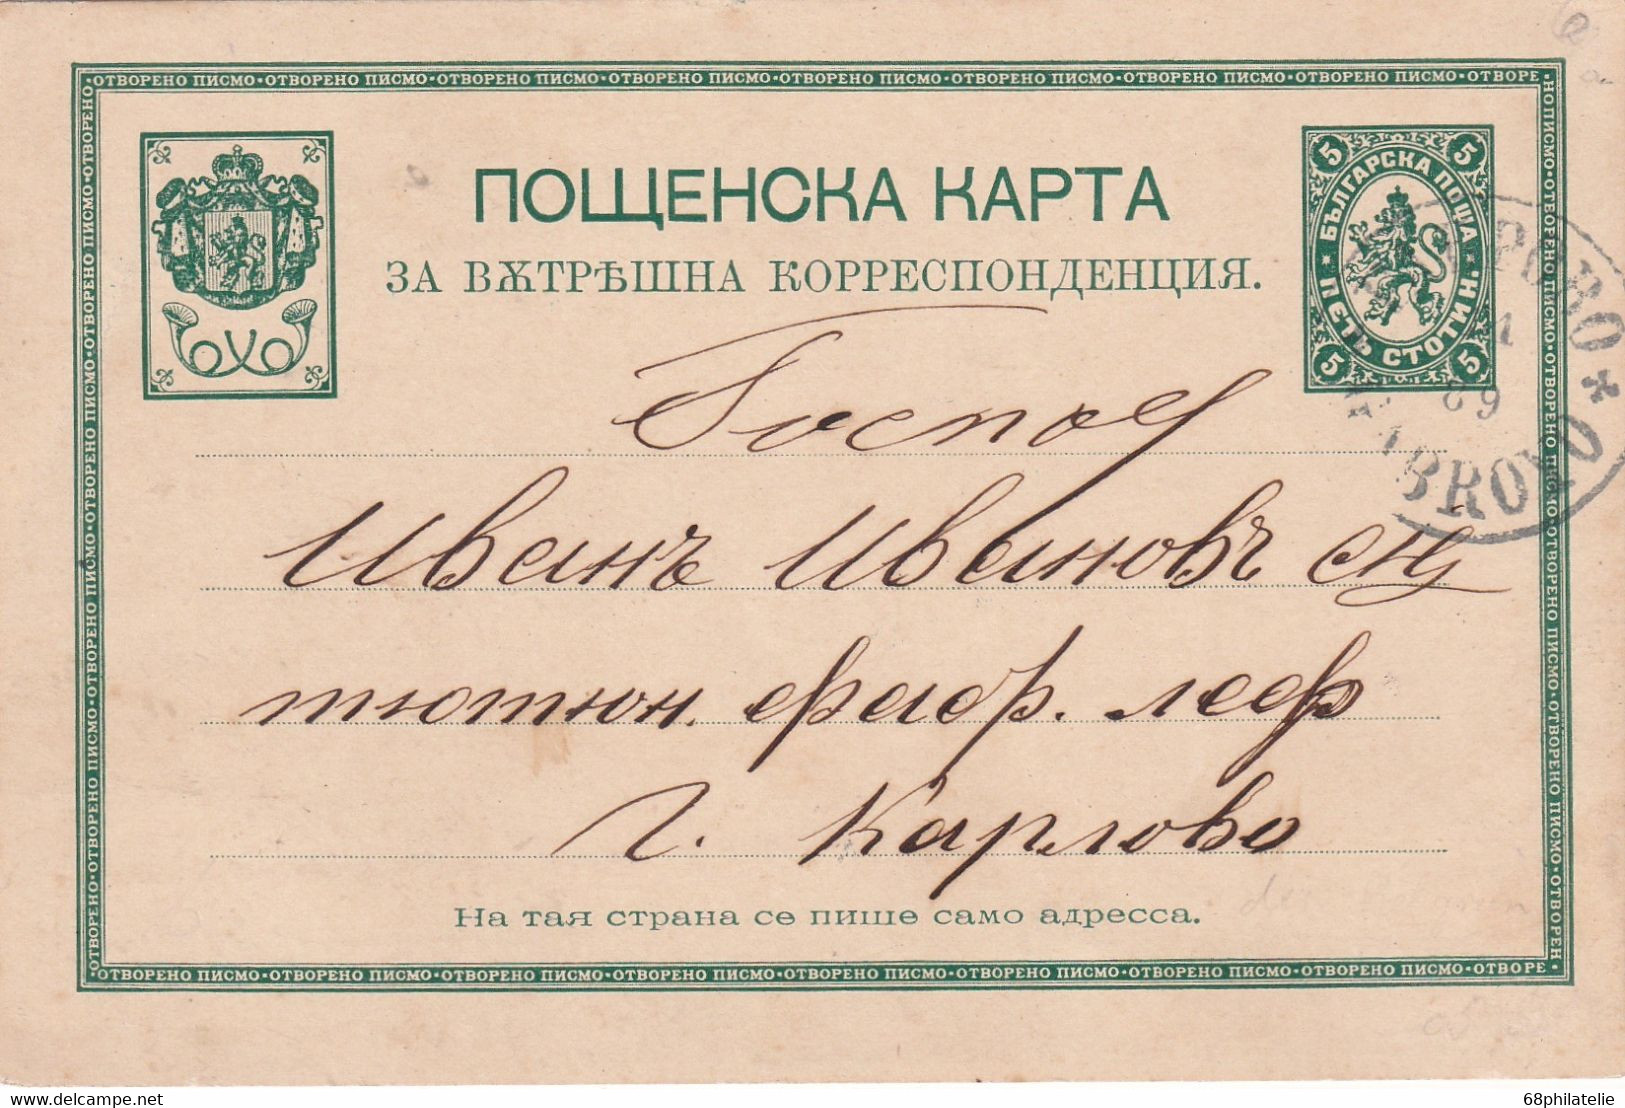 ОТВОРЕНО ПИСМО·ОТВОРЕНО ПИСМО·ОТВОРЕНО ПИСМО·ОТВОРЕНО ПИСМО·ОТВОРЕНО ПИСМО·ОТВОРЕНО ПИСМО·ОТВОРЕНО ПИСМО·ОТВОРЕНО ПИСМО·ОТВОРЕ
ПОЩЕНСКА КАРТА
ЗА ВѪТРѢШНА КОРРЕСПОНДЕНЦИЯ.
5 5
БЪЛГАРСКА ПОЩА
ПЕТЬ СТОТИН.
5 5
1
89
BROVO
Господ
Иванъ Ивановъ
тютюн. фабр.
г. Карлово
На тая страна се пише само адресса.
ОТВОРЕНО ПИСМО·ОТВОРЕНО ПИСМО·ОТВОРЕНО ПИСМО·ОТВОРЕНО ПИСМО·ОТВОРЕНО ПИСМО·ОТВОРЕНО ПИСМО·ОТВОРЕНО ПИСМО·ОТВОРЕНО ПИСМО·ОТВОРЕ
delcampe.net
68philatelie